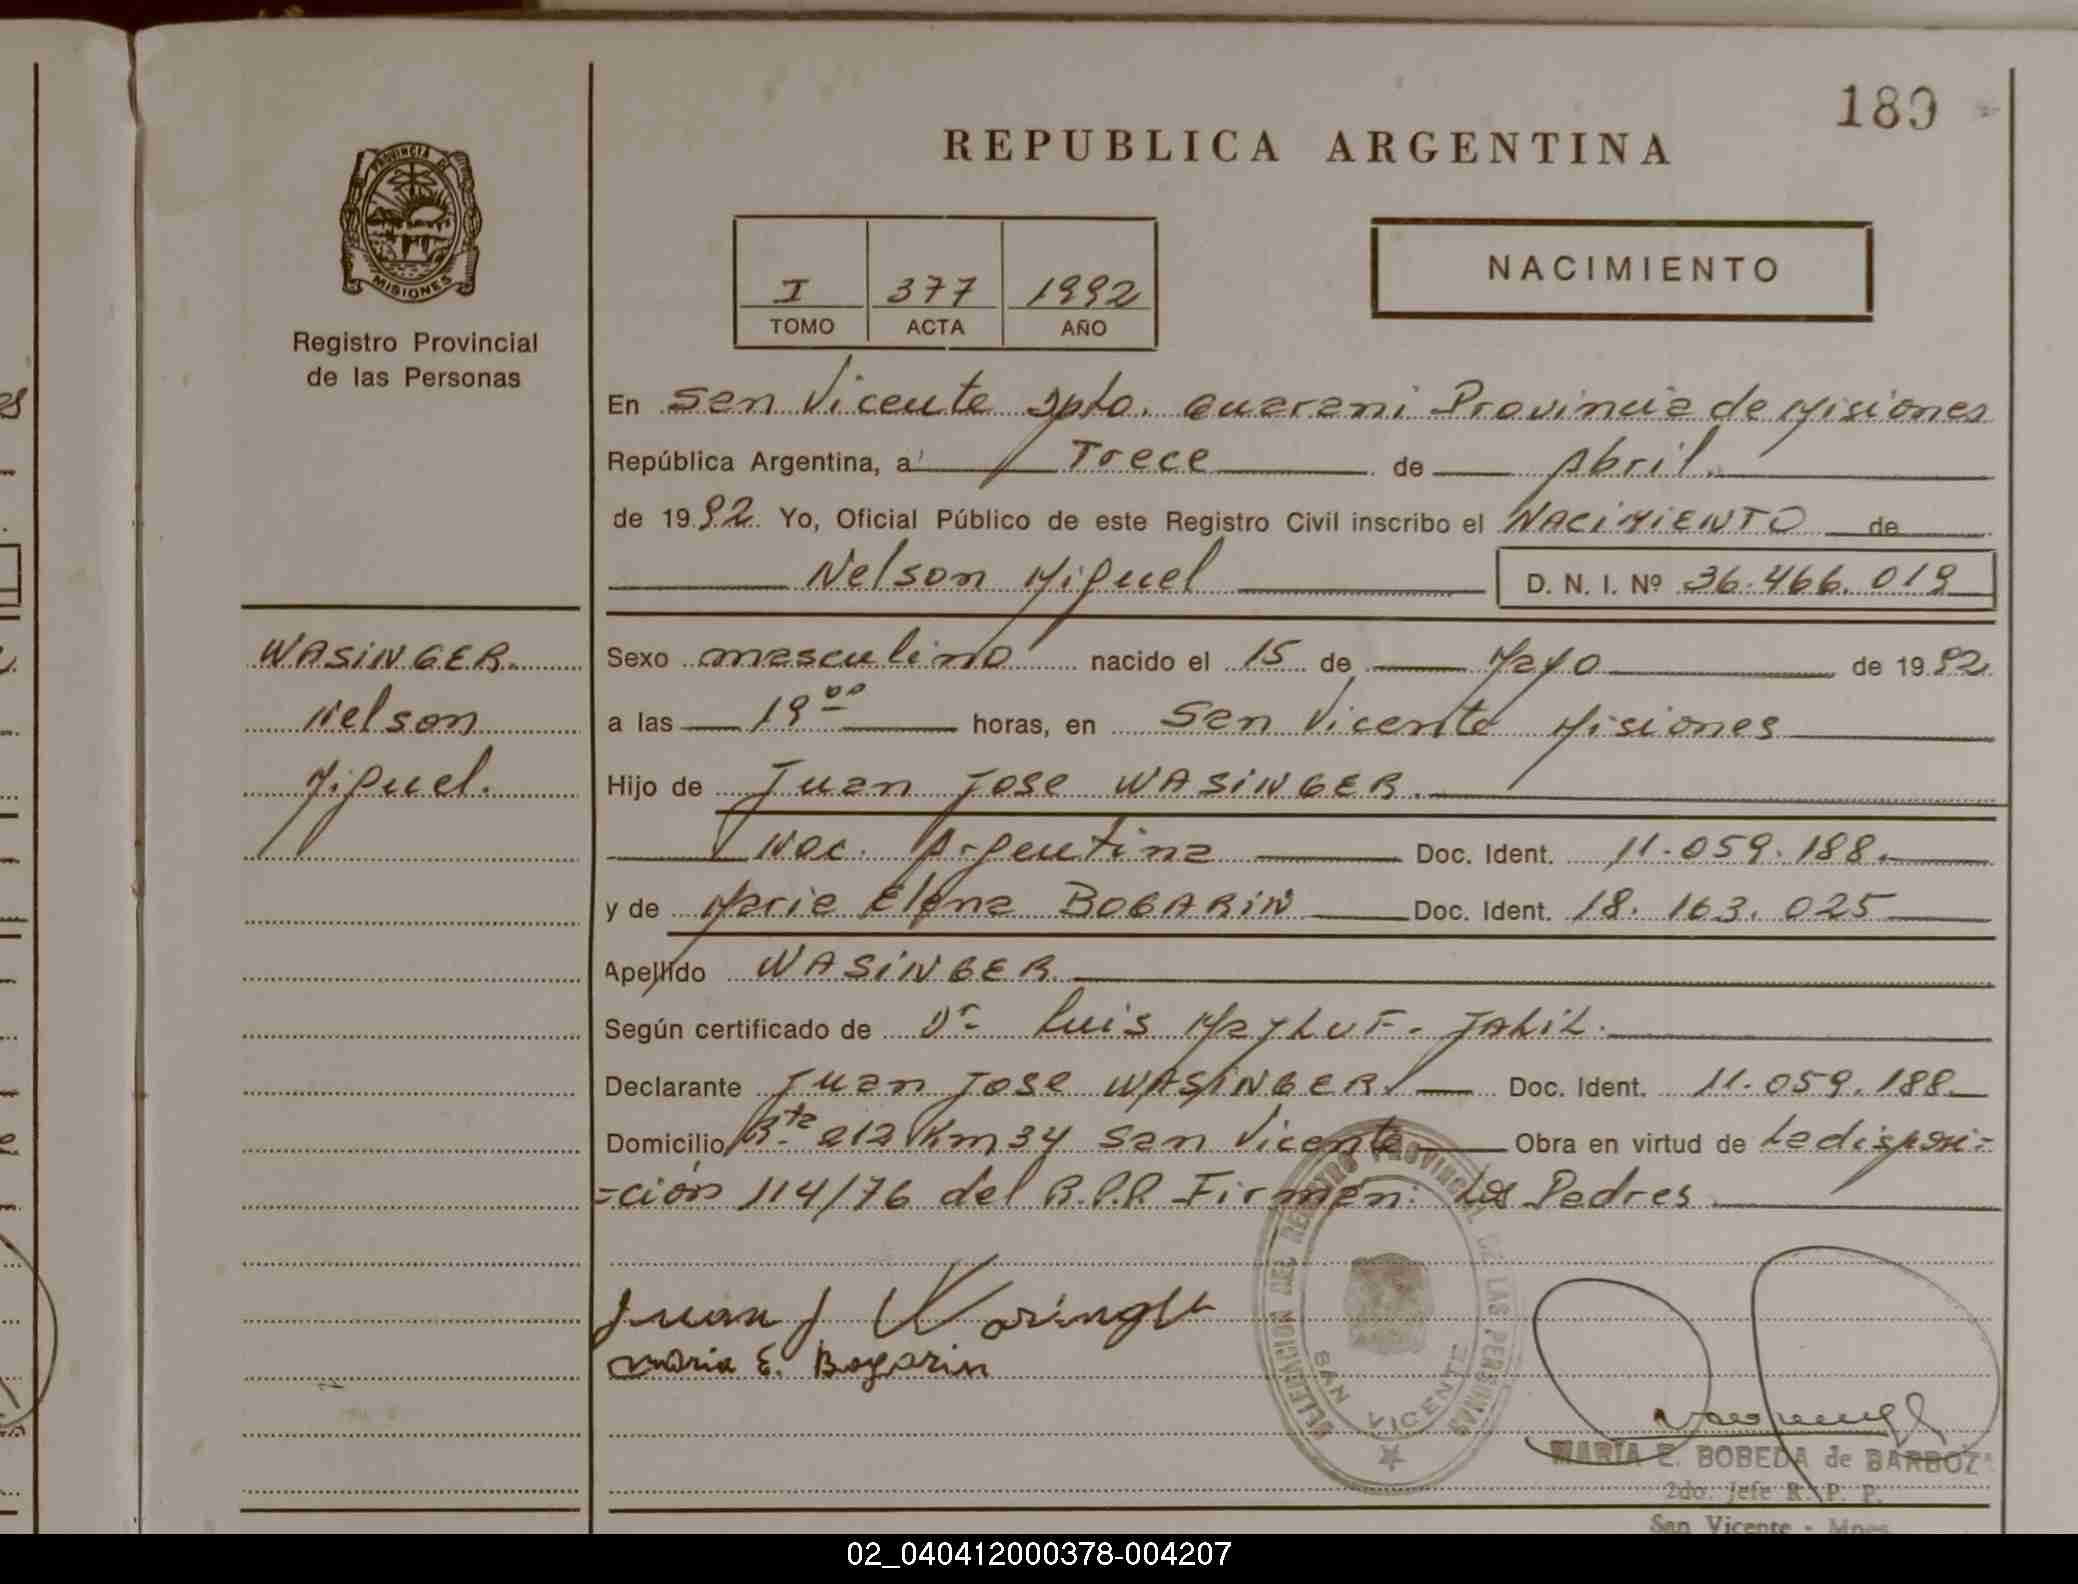 189
REPUBLICA ARGENTINA
PROVINCIA DE
MISIONES
Registro Provincial
de las Personas
I 377 1992
TOMO ACTA AÑO
NACIMIENTO
En San Vicente Dpto. Guarani Provincia de Misiones
República Argentina, a Trece de Abril
de 1992. Yo, Oficial Público de este Registro Civil inscribo el NACIMIENTO de
Nelson Miguel D. N. I. Nº 36.466.019
WASINGER
Nelson
Miguel.
Sexo masculino nacido el 15 de Mayo de 1992
a las 19 00 horas, en San Vicente Misiones
Hijo de Juan Jose WASINGER.
Nac. Argentina Doc. Ident. 11.059.188.
y de Maria Elena BOGARIN Doc. Ident. 18.163.025
Apellido WASINGER
Según certificado de Dr Luis Mayluf - JALIL.
Declarante Juan Jose WASINGER Doc. Ident. 11.059.188
Domicilio Rta 212 Km 34 San Vicente Obra en virtud de La disposi=
=ción 114/76 del R.P.P. Firman: Los Padres
Juan J Wasinger
Maria E. Bogarin
DELEGACION DEL REGISTRO PROVINCIAL DE LAS PERSONAS
SAN VICENTE
MARIA E. BOBEDA de BARBOZA
2do. Jefe R. P. P.
San Vicente - Mnes
02_040412000378-004207